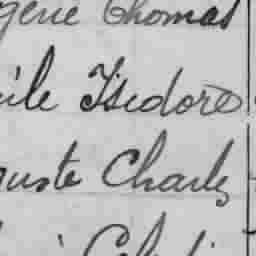 gène Thomas
ile Isidore
guste Charles